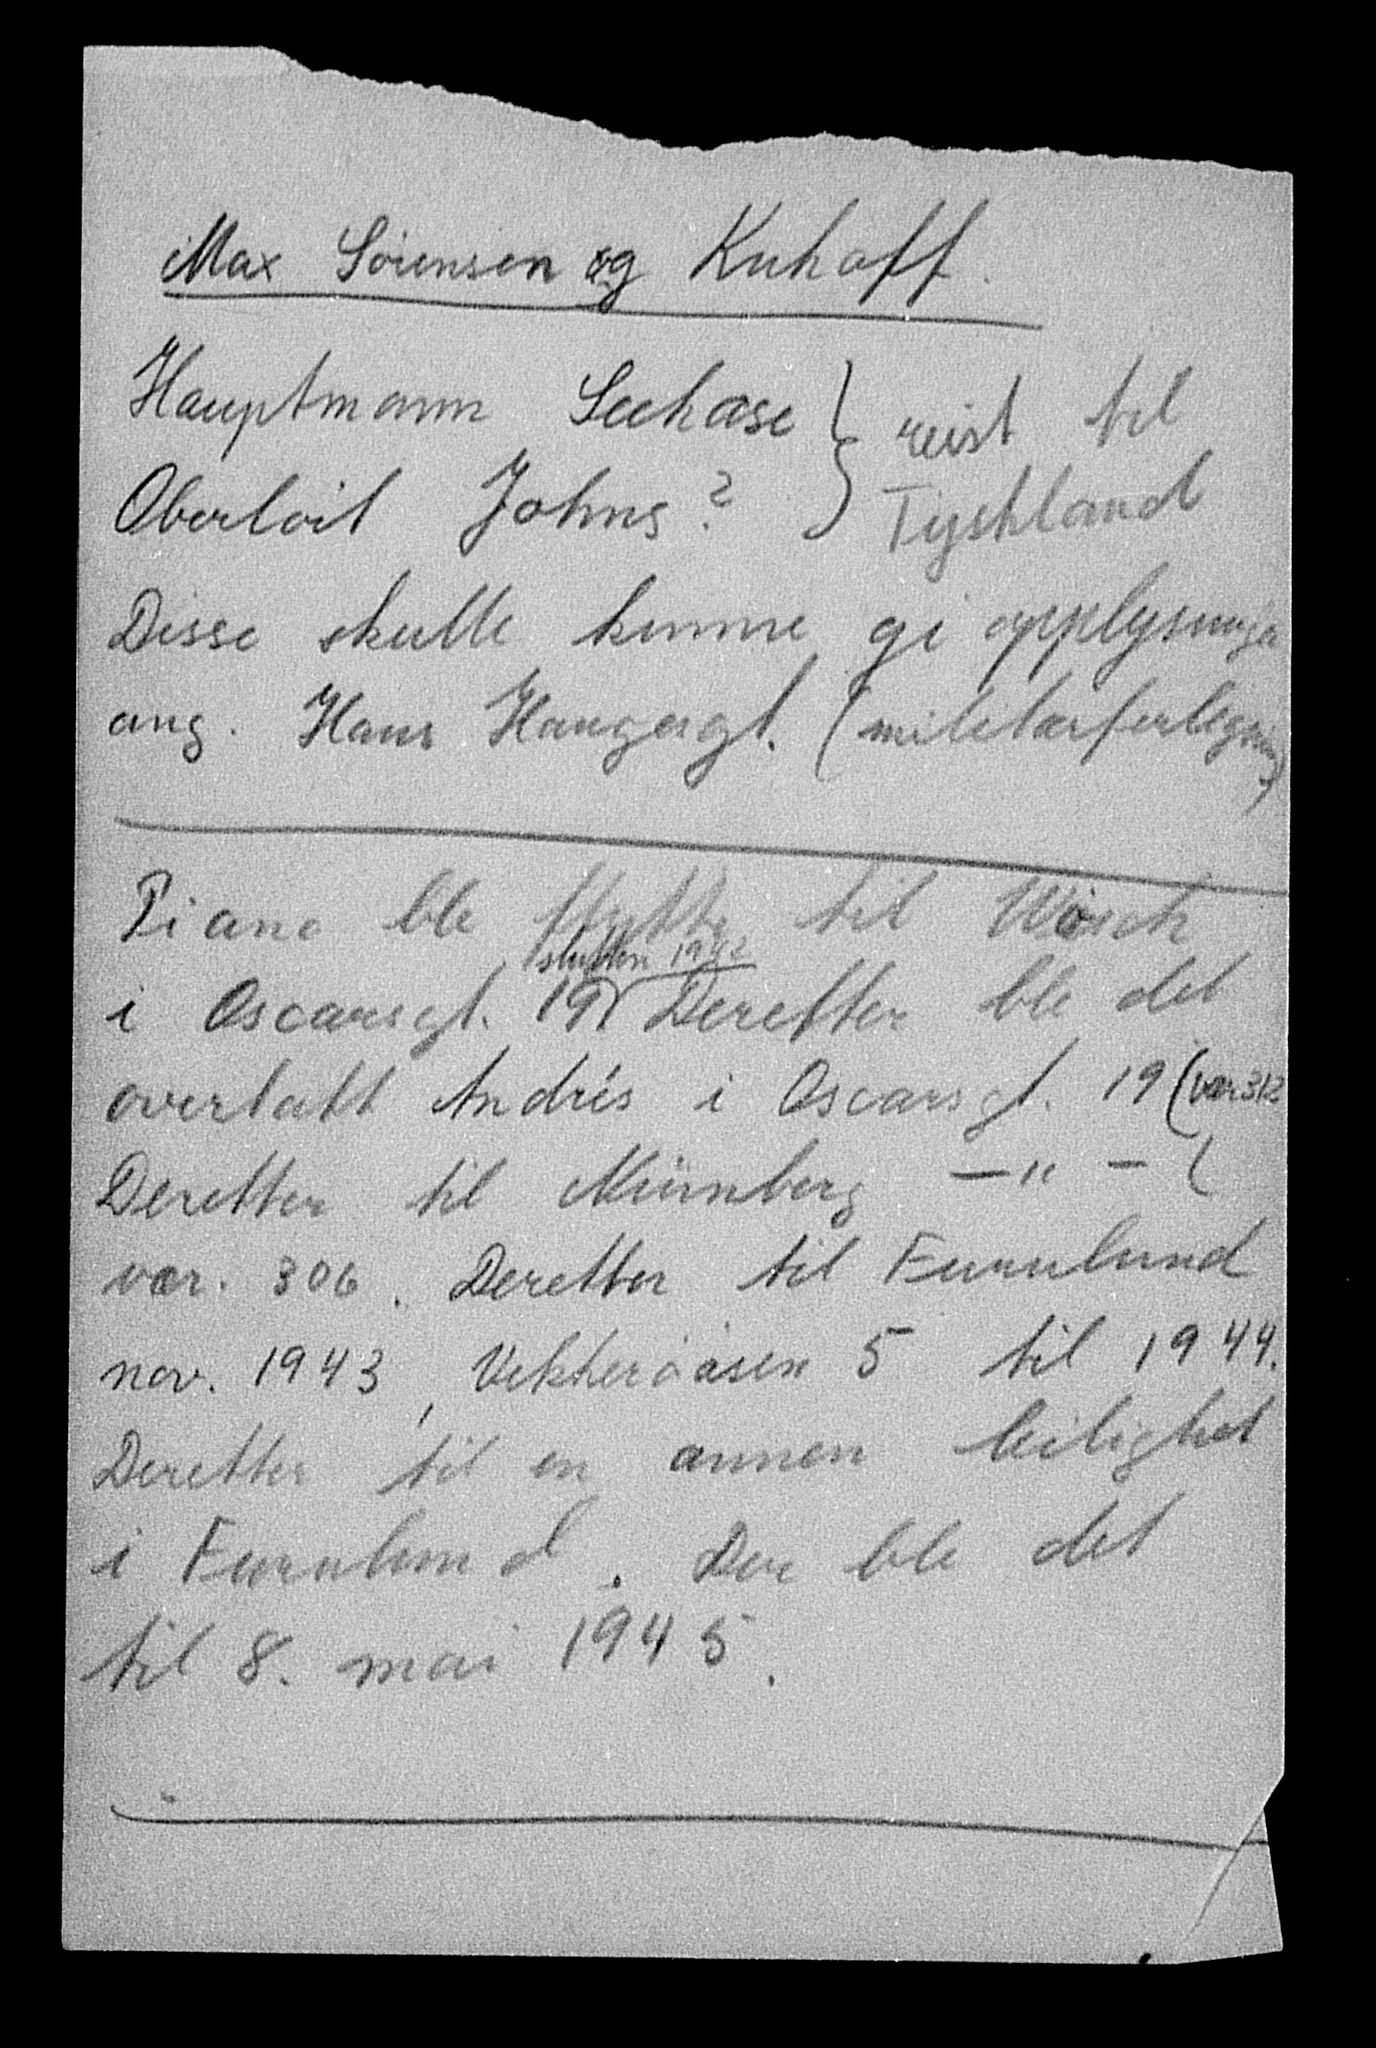 Max Sörensen og Kuhoff.
Hauptmann Seehase } reist til
Oberloit Johns? } Tyskland
Disse skulle kunne gi opplysninger
ang. Hans Haugesgt. (militærforlegning)
Piano ble flyttet til Wösch
slutten 1942
i Oscarsgt. 19. Deretter ble det
overlatt Andrés i Oscarsgt. 19 (vær 312
Deretter til Nürnberg — " — (
vær. 306. Deretter til Furulund
nov. 1943, Vekkerøåsen 5 til 1944.
Deretter til en annen leilighet
i Furulund. Der ble det
til 8. mai 1945.